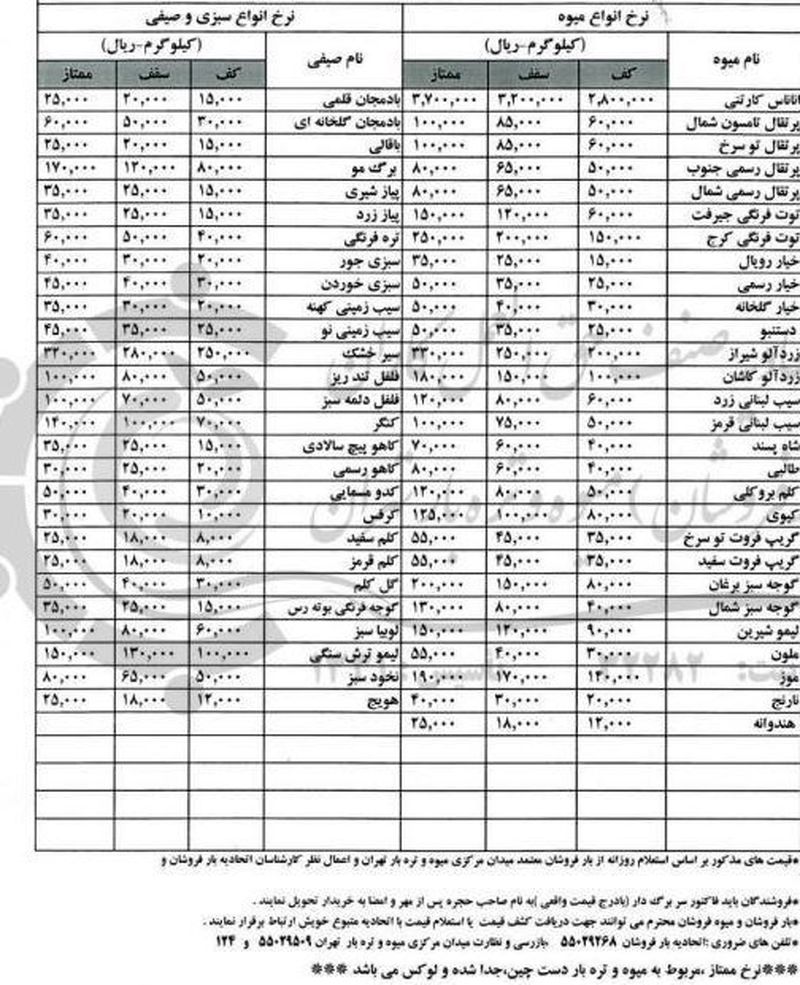 نرخ انواع میوه نرخ انواع سبزی و صیفی
نام میوه (کیلوگرم-ریال) نام صیفی (کیلوگرم-ریال)
کف سقف ممتاز کف سقف ممتاز
اناناس کارتنی ۲,۸۰۰,۰۰۰ ۳,۲۰۰,۰۰۰ ۳,۷۰۰,۰۰۰ بادمجان قلمی ۱۵,۰۰۰ ۲۰,۰۰۰ ۲۵,۰۰۰
پرتقال تامسون شمال ۶۰,۰۰۰ ۸۵,۰۰۰ ۱۰۰,۰۰۰ بادمجان گلخانه ای ۳۰,۰۰۰ ۵۰,۰۰۰ ۶۰,۰۰۰
پرتقال تو سرخ ۶۰,۰۰۰ ۸۵,۰۰۰ ۱۰۰,۰۰۰ باقالی ۱۵,۰۰۰ ۲۰,۰۰۰ ۲۵,۰۰۰
پرتقال رسمی جنوب ۵۰,۰۰۰ ۶۵,۰۰۰ ۸۰,۰۰۰ برگ مو ۸۰,۰۰۰ ۱۲۰,۰۰۰ ۱۷۰,۰۰۰
پرتقال رسمی شمال ۵۰,۰۰۰ ۶۵,۰۰۰ ۸۰,۰۰۰ پیاز شیری ۱۵,۰۰۰ ۲۵,۰۰۰ ۳۵,۰۰۰
توت فرنگی جیرفت ۶۰,۰۰۰ ۱۲۰,۰۰۰ ۱۵۰,۰۰۰ پیاز زرد ۱۵,۰۰۰ ۲۵,۰۰۰ ۳۵,۰۰۰
توت فرنگی کرج ۱۵۰,۰۰۰ ۲۰۰,۰۰۰ ۲۵۰,۰۰۰ تره فرنگی ۴۰,۰۰۰ ۵۰,۰۰۰ ۶۰,۰۰۰
خیار رویال ۱۵,۰۰۰ ۲۵,۰۰۰ ۳۵,۰۰۰ سبزی جور ۲۰,۰۰۰ ۳۰,۰۰۰ ۴۰,۰۰۰
خیار رسمی ۲۵,۰۰۰ ۳۵,۰۰۰ ۵۰,۰۰۰ سبزی خوردن ۳۰,۰۰۰ ۴۰,۰۰۰ ۴۵,۰۰۰
خیار گلخانه ۳۰,۰۰۰ ۴۰,۰۰۰ ۵۰,۰۰۰ سیب زمینی کهنه ۲۰,۰۰۰ ۳۰,۰۰۰ ۳۵,۰۰۰
دستنبو ۲۵,۰۰۰ ۳۵,۰۰۰ ۵۰,۰۰۰ سیب زمینی نو ۲۵,۰۰۰ ۳۵,۰۰۰ ۴۵,۰۰۰
زردآلو شیراز ۲۰۰,۰۰۰ ۲۵۰,۰۰۰ ۳۳۰,۰۰۰ سیر خشک ۲۵۰,۰۰۰ ۲۸۰,۰۰۰ ۳۲۰,۰۰۰
زردآلو کاشان ۱۰۰,۰۰۰ ۱۵۰,۰۰۰ ۱۸۰,۰۰۰ فلفل تند ریز ۵۰,۰۰۰ ۸۰,۰۰۰ ۱۰۰,۰۰۰
سیب لبنانی زرد ۶۰,۰۰۰ ۸۰,۰۰۰ ۱۲۰,۰۰۰ فلفل دلمه سبز ۵۰,۰۰۰ ۷۰,۰۰۰ ۱۰۰,۰۰۰
سیب لبنانی قرمز ۵۰,۰۰۰ ۷۵,۰۰۰ ۱۰۰,۰۰۰ کنگر ۷۰,۰۰۰ ۱۰۰,۰۰۰ ۱۴۰,۰۰۰
شاه پسند ۴۰,۰۰۰ ۶۰,۰۰۰ ۷۰,۰۰۰ کاهو پیچ سالادی ۱۵,۰۰۰ ۲۵,۰۰۰ ۳۵,۰۰۰
طالبی ۴۰,۰۰۰ ۶۰,۰۰۰ ۸۰,۰۰۰ کاهو رسمی ۲۰,۰۰۰ ۲۵,۰۰۰ ۳۰,۰۰۰
کلم بروکلی ۵۰,۰۰۰ ۸۰,۰۰۰ ۱۲۰,۰۰۰ کدو مسمایی ۳۰,۰۰۰ ۴۰,۰۰۰ ۵۰,۰۰۰
کیوی ۸۰,۰۰۰ ۱۰۰,۰۰۰ ۱۲۵,۰۰۰ کرفس ۱۰,۰۰۰ ۲۰,۰۰۰ ۳۰,۰۰۰
گریپ فروت تو سرخ ۳۵,۰۰۰ ۴۵,۰۰۰ ۵۵,۰۰۰ کلم سفید ۸,۰۰۰ ۱۸,۰۰۰ ۲۵,۰۰۰
گریپ فروت سفید ۳۵,۰۰۰ ۴۵,۰۰۰ ۵۵,۰۰۰ کلم قرمز ۸,۰۰۰ ۱۸,۰۰۰ ۲۵,۰۰۰
گوجه سبز برغان ۸۰,۰۰۰ ۱۵۰,۰۰۰ ۲۰۰,۰۰۰ گل کلم ۳۰,۰۰۰ ۴۰,۰۰۰ ۵۰,۰۰۰
گوجه سبز شمال ۴۰,۰۰۰ ۸۰,۰۰۰ ۱۳۰,۰۰۰ گوجه فرنگی بوته رس ۱۵,۰۰۰ ۲۵,۰۰۰ ۳۵,۰۰۰
لیمو شیرین ۹۰,۰۰۰ ۱۲۰,۰۰۰ ۱۵۰,۰۰۰ لوبیا سبز ۶۰,۰۰۰ ۸۰,۰۰۰ ۱۰۰,۰۰۰
ملون ۳۰,۰۰۰ ۴۰,۰۰۰ ۵۵,۰۰۰ لیمو ترش سنگی ۱۰۰,۰۰۰ ۱۳۰,۰۰۰ ۱۵۰,۰۰۰
موز ۱۴۰,۰۰۰ ۱۷۰,۰۰۰ ۱۹۰,۰۰۰ نخود سبز ۵۰,۰۰۰ ۶۵,۰۰۰ ۸۰,۰۰۰
نارنج ۲۰,۰۰۰ ۳۰,۰۰۰ ۴۰,۰۰۰ هویج ۱۲,۰۰۰ ۱۸,۰۰۰ ۲۵,۰۰۰
هندوانه ۱۲,۰۰۰ ۱۸,۰۰۰ ۲۵,۰۰۰
*قیمت های مذکور بر اساس استعلام روزانه از بار فروشان معتمد میدان مرکزی میوه و تره بار تهران و اعمال نظر کارشناسان اتحادیه بار فروشان و
*فروشندگان باید فاکتور سر برگ دار (بادرج قیمت واقعی )به نام صاحب حجره پس از مهر و امضا به خریدار تحویل نمایند .
*بار فروشان و میوه فروشان محترم می توانند جهت دریافت کشف قیمت یا استعلام قیمت با اتحادیه متبوع خویش ارتباط برقرار نمایند .
*تلفن های ضروری :اتحادیه بار فروشان ۵۵۰۲۹۲۶۸ ،بازرسی و نظارت میدان مرکزی میوه و تره بار تهران ۵۵۰۲۹۵۰۹ و ۱۲۴
***نرخ ممتاز ،مربوط به میوه و تره بار دست چین،جدا شده و لوکس می باشد ***